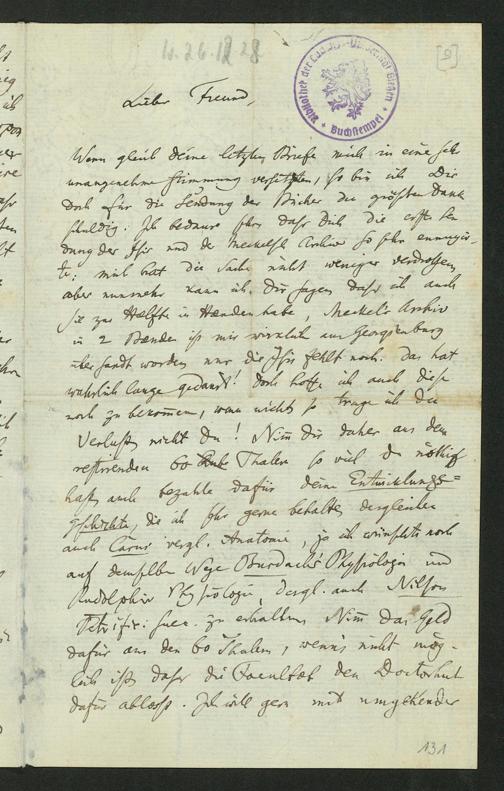 16.26.12 28
[9]
Bibliothek der Ludwigs-Universität Gießen * Buchstempel *
Lieber Freund,
Wenn gleich deine letzten Briefe mich in eine sehr
unangenehme Stimmung versetzten, so bin ich Dir
doch für die Sendung der Bücher den größten Dank
schuldig. Ich bedaure sehr daß Dich die erste Sen
dung der Isis und des Meckelsch Archiv so sehr
te; mich hat die Sache nicht weniger verdrossen,
aber nunmehr kann ich Dir sagen daß ich auch
sie zur Hälfte in Haenden habe, Meckels Archiv
in 2 Baenden ist mir wirklich aus Georgienburg
übersandt worden nur die Isis fehlt noch. Das hat
wahrlich lange gedauert! Doch hoffe ich auch diese
noch zu bekommen, wenn nicht so trage ich den
Verlust nicht Du! Nim Dir daher aus den
restirenden 60 Thalern so viel Du nöthig
hast, auch bezahle dafür deine Entwicklungs=
geschichte, die ich sehr gerne behalte, desgleichen
auch Carus vergl. Anatomie, ja ich wünschte noch
auf demselben Wege Burdachs Physiologie und
Rudolphis Physiologie, desgl. auch Nilson
Petrific: suec: zu erhalten. Nim das Geld
dafür aus den 60 Thalern, wenn's nicht mög-
lich ist, daß die Facultät den Doctorhut
dafür ablasse. Ich will gern mit umgehender
131